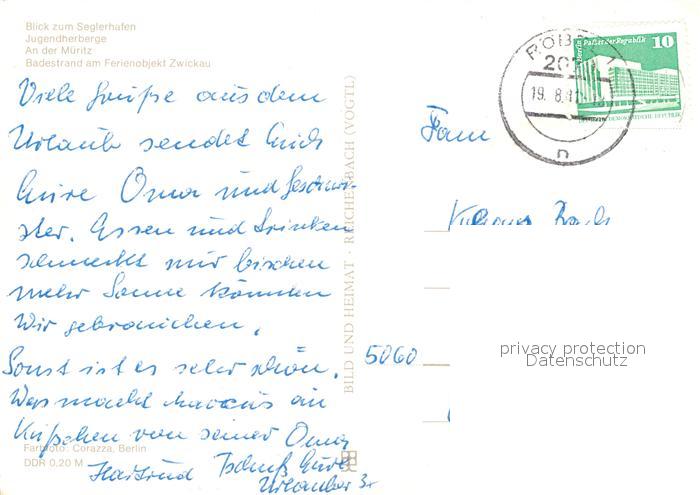 Blick zum Seglerhafen
Jugendherberge
An der Müritz
Badestrand am Ferienobjekt Zwickau
Viele Grüße aus dem
Urlaub sendet Euch
Eure Oma und Geschwi-
ster. Essen und Trinken
schmeckt nur bischen
mehr Sonne könnten
Wir gebrauchen.
Sonst ist es sehr schön.
Was macht ein
Küßchen von seiner Oma
Tschuß Eure
Urlauber
Farbfoto: Corazza, Berlin
DDR 0,20 M
BILD UND HEIMAT · REICHENBACH (VOGTL)
Fam
5060
RÖBEL
19. 8. 81
Palast der Republik 10
privacy protection
Datenschutz